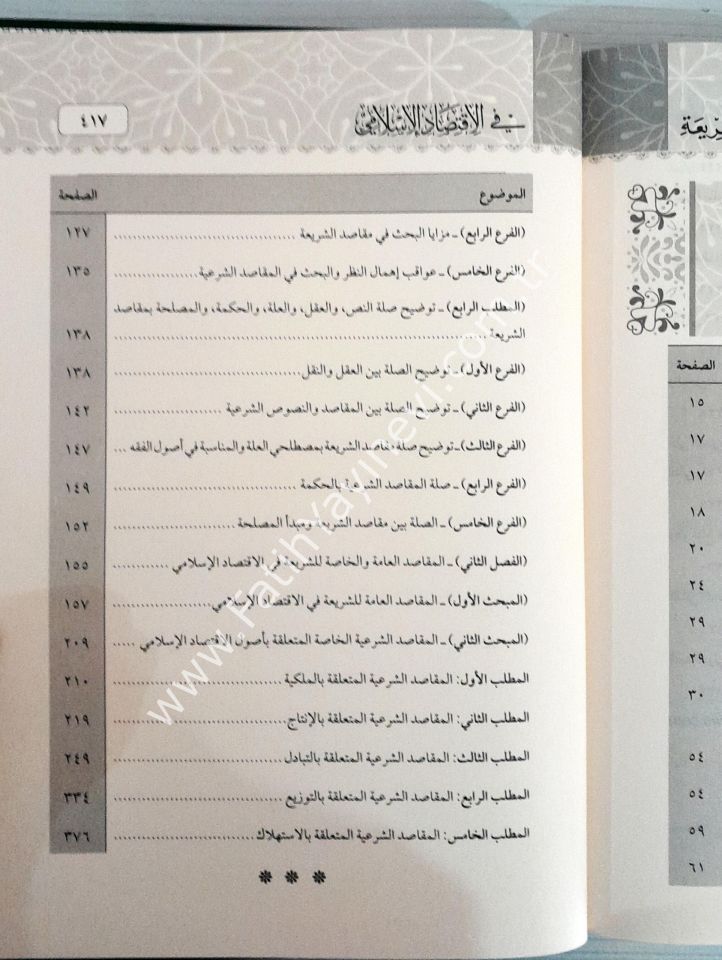 في الاقتصاد الإسلامي
٤١٧
الموضوع الصفحة
(الفرع الرابع) ـ مزايا البحث في مقاصد الشريعة .......... ١٢٧
(الفرع الخامس) ـ عواقب إهمال النظر والبحث في المقاصد الشرعية .......... ١٣٥
(المطلب الرابع) ـ توضيح صلة النص، والعقل، والعلة، والحكمة، والمصلحة بمقاصد
الشريعة .......... ١٣٨
(الفرع الأول) ـ توضيح الصلة بين العقل والنقل .......... ١٣٨
(الفرع الثاني) ـ توضيح الصلة بين المقاصد والنصوص الشرعية .......... ١٤٢
(الفرع الثالث) ـ توضيح صلة مقاصد الشريعة بمصطلحي العلة والمناسبة في أصول الفقه ... ١٤٧
(الفرع الرابع) ـ صلة المقاصد الشرعية بالحكمة .......... ١٤٩
(الفرع الخامس) ـ الصلة بين مقاصد الشريعة ومبدأ المصلحة .......... ١٥٢
(الفصل الثاني) ـ المقاصد العامة والخاصة للشريعة في الاقتصاد الإسلامي .......... ١٥٥
(المبحث الأول) ـ المقاصد العامة للشريعة في الاقتصاد الإسلامي .......... ١٥٧
(المبحث الثاني) ـ المقاصد الشرعية الخاصة المتعلقة بأصول الاقتصاد الإسلامي ..... ٢٠٩
المطلب الأول: المقاصد الشرعية المتعلقة بالملكية .......... ٢١٠
المطلب الثاني: المقاصد الشرعية المتعلقة بالإنتاج .......... ٢١٩
المطلب الثالث: المقاصد الشرعية المتعلقة بالتبادل .......... ٢٤٩
المطلب الرابع: المقاصد الشرعية المتعلقة بالتوزيع .......... ٣٣٤
المطلب الخامس: المقاصد الشرعية المتعلقة بالاستهلاك .......... ٣٧٦
* * *
الصفحة
١٥
١٧
١٧
١٨
٢٠
٢٤
٢٩
٢٩
٣٠
٥٤
٥٤
٥٩
٦١
www.FatihYayinevi.com.tr